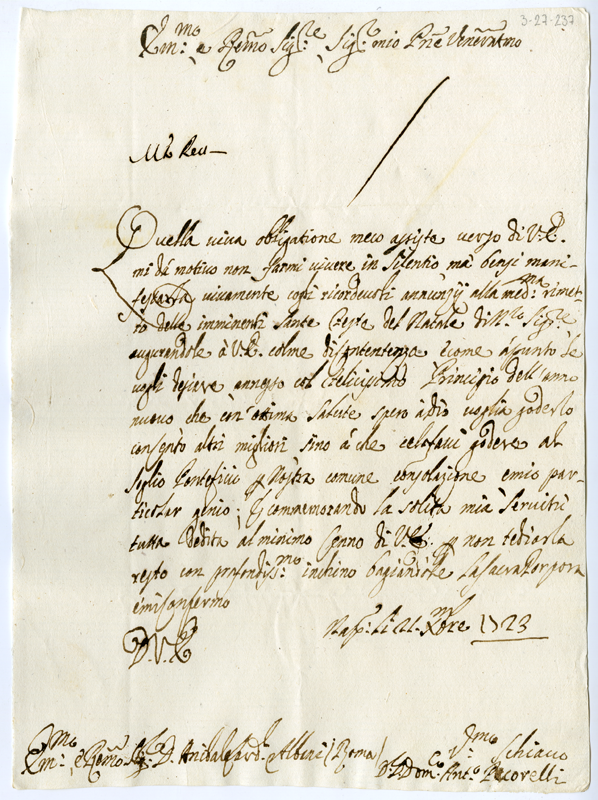 3-27-237
Em.mo e Rev.mo Sig.re Sig.r mio P.ne Venerat.mo
Quella viva obligatione meco assiste verso di V.E.
mi dà motivo non farmi vivere in silentio mà bensi mani-
festarsi vivamente copi ricordevoli annunzij alla med.ma
delle imminenti Sante Feste del Natale di N.ro Sig.re
augurandole à V.E. colme di contentenza come appunto le
vogli desiare annesso col felicissimo Principio dell'anno
nuovo che con ottima salute spero à dio voglia goderlo
con cento altri migliori sino à che celafacci godere al
Soglio Pontefitio p nostra comune consolazione e mio par-
ticolar genio; E commemorando la solita mia servitù
tutta dedita al minimo Cenno di V.E. p non tediarla
resto con profondiss.mo inchino bagiandole la sacra Porpora
e mi confermo
Nap. li 21 Xbre 1723
D.V.E.
Em.mo e Rev.mo Sig. D. Anibal Card. Albini (Roma)
V.mo Schiavo
D. Dom.co Ant.o Pecorelli